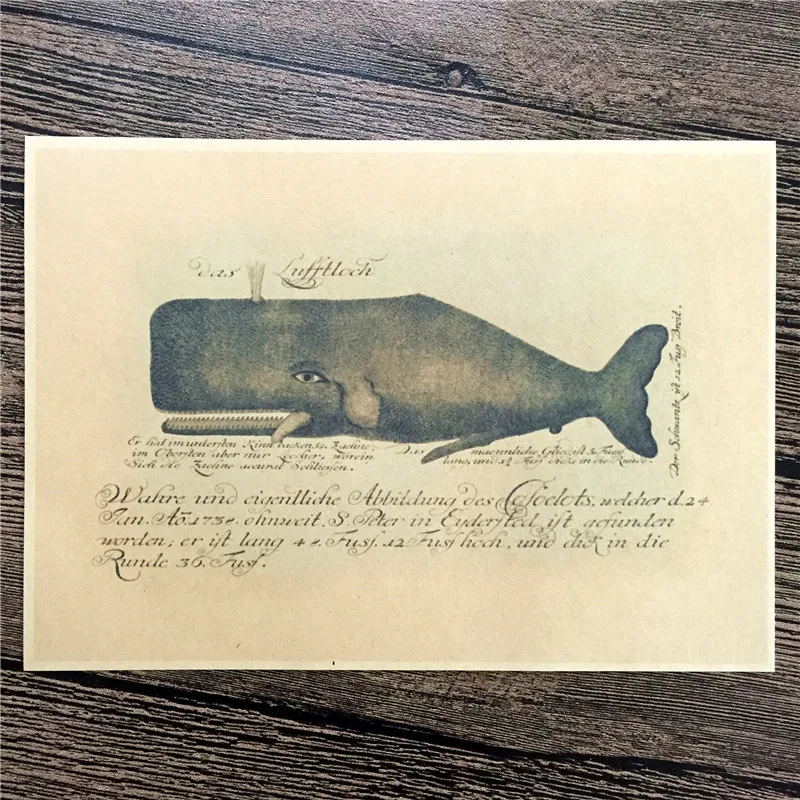 das Lufftloch
Der Schwantz ist 12 Fusz Breit.
Er hat im untersten Kinn backen 52. Zaehne,
im Obersten aber nur Loecher, worein
Sich die Zaehne accurat Schliessen.
Das maennliche Glied ist 5. Fusz
lang, und 1½ Fusz dicke in die Runde.
Wahre und eigentliche Abbildung des Casoelots, welcher d. 24
Jan. Ao. 1738. ohnweit, S. Peter in Eydersted, ist gefunden
worden; er ist lang 48. Fusz. 12 Fusz hoch, und dick in die
Runde 36. Fusz.